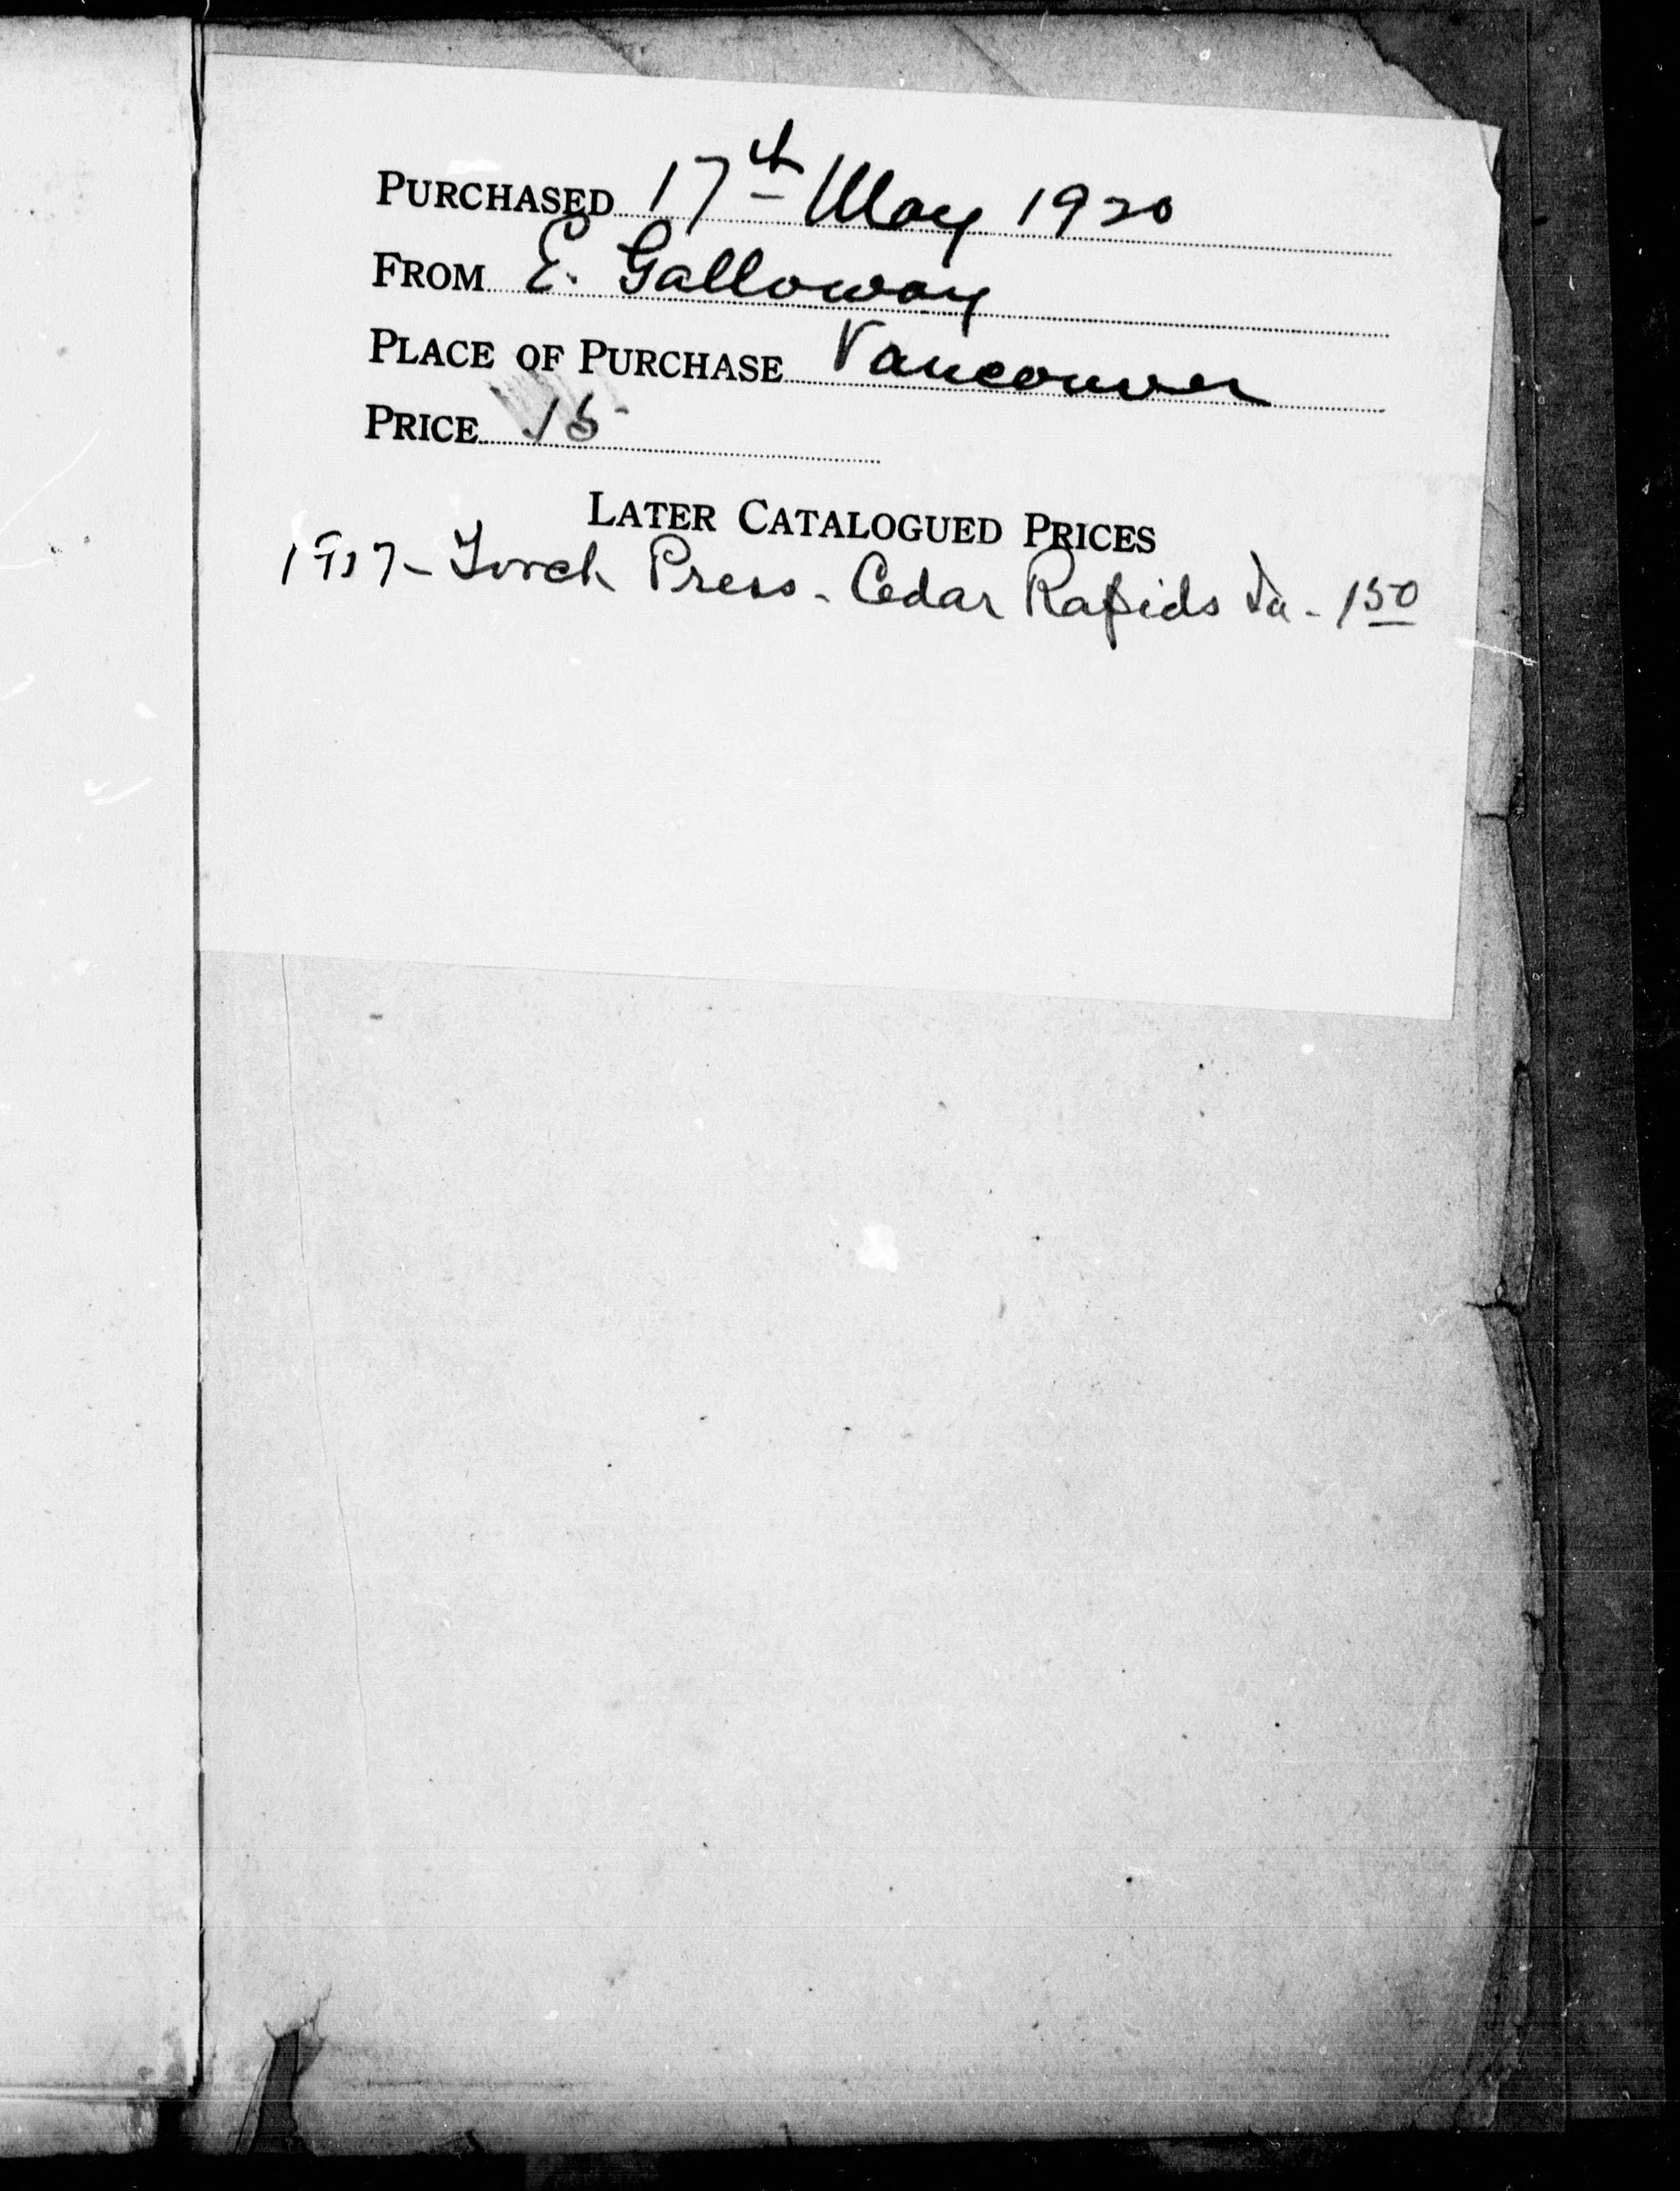 PURCHASED 17th May 1920
FROM E. Galloway
PLACE OF PURCHASE Vancouver
PRICE 15
LATER CATALOGUED PRICES
1937 - Torch Press - Cedar Rapids Ia - 150